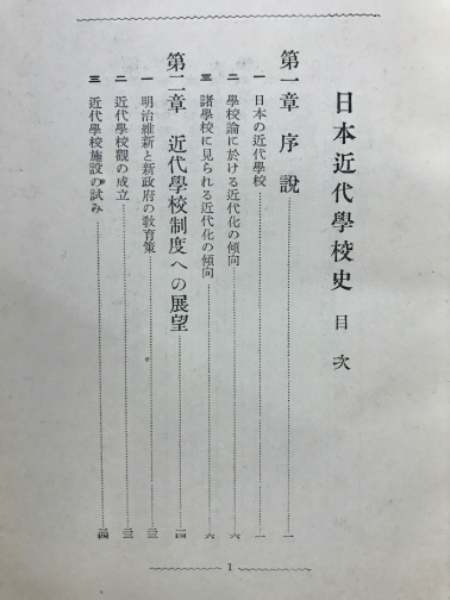 日本近代學校史 目次
第一章 序說 一
一 日本の近代學校 一
二 學校論に於ける近代化の傾向 六
三 諸學校に見られる近代化の傾向 六
第二章 近代學校制度への展望 一四
一 明治維新と新政府の敎育策
二 近代學校觀の成立
三 近代學校施設の試み
1